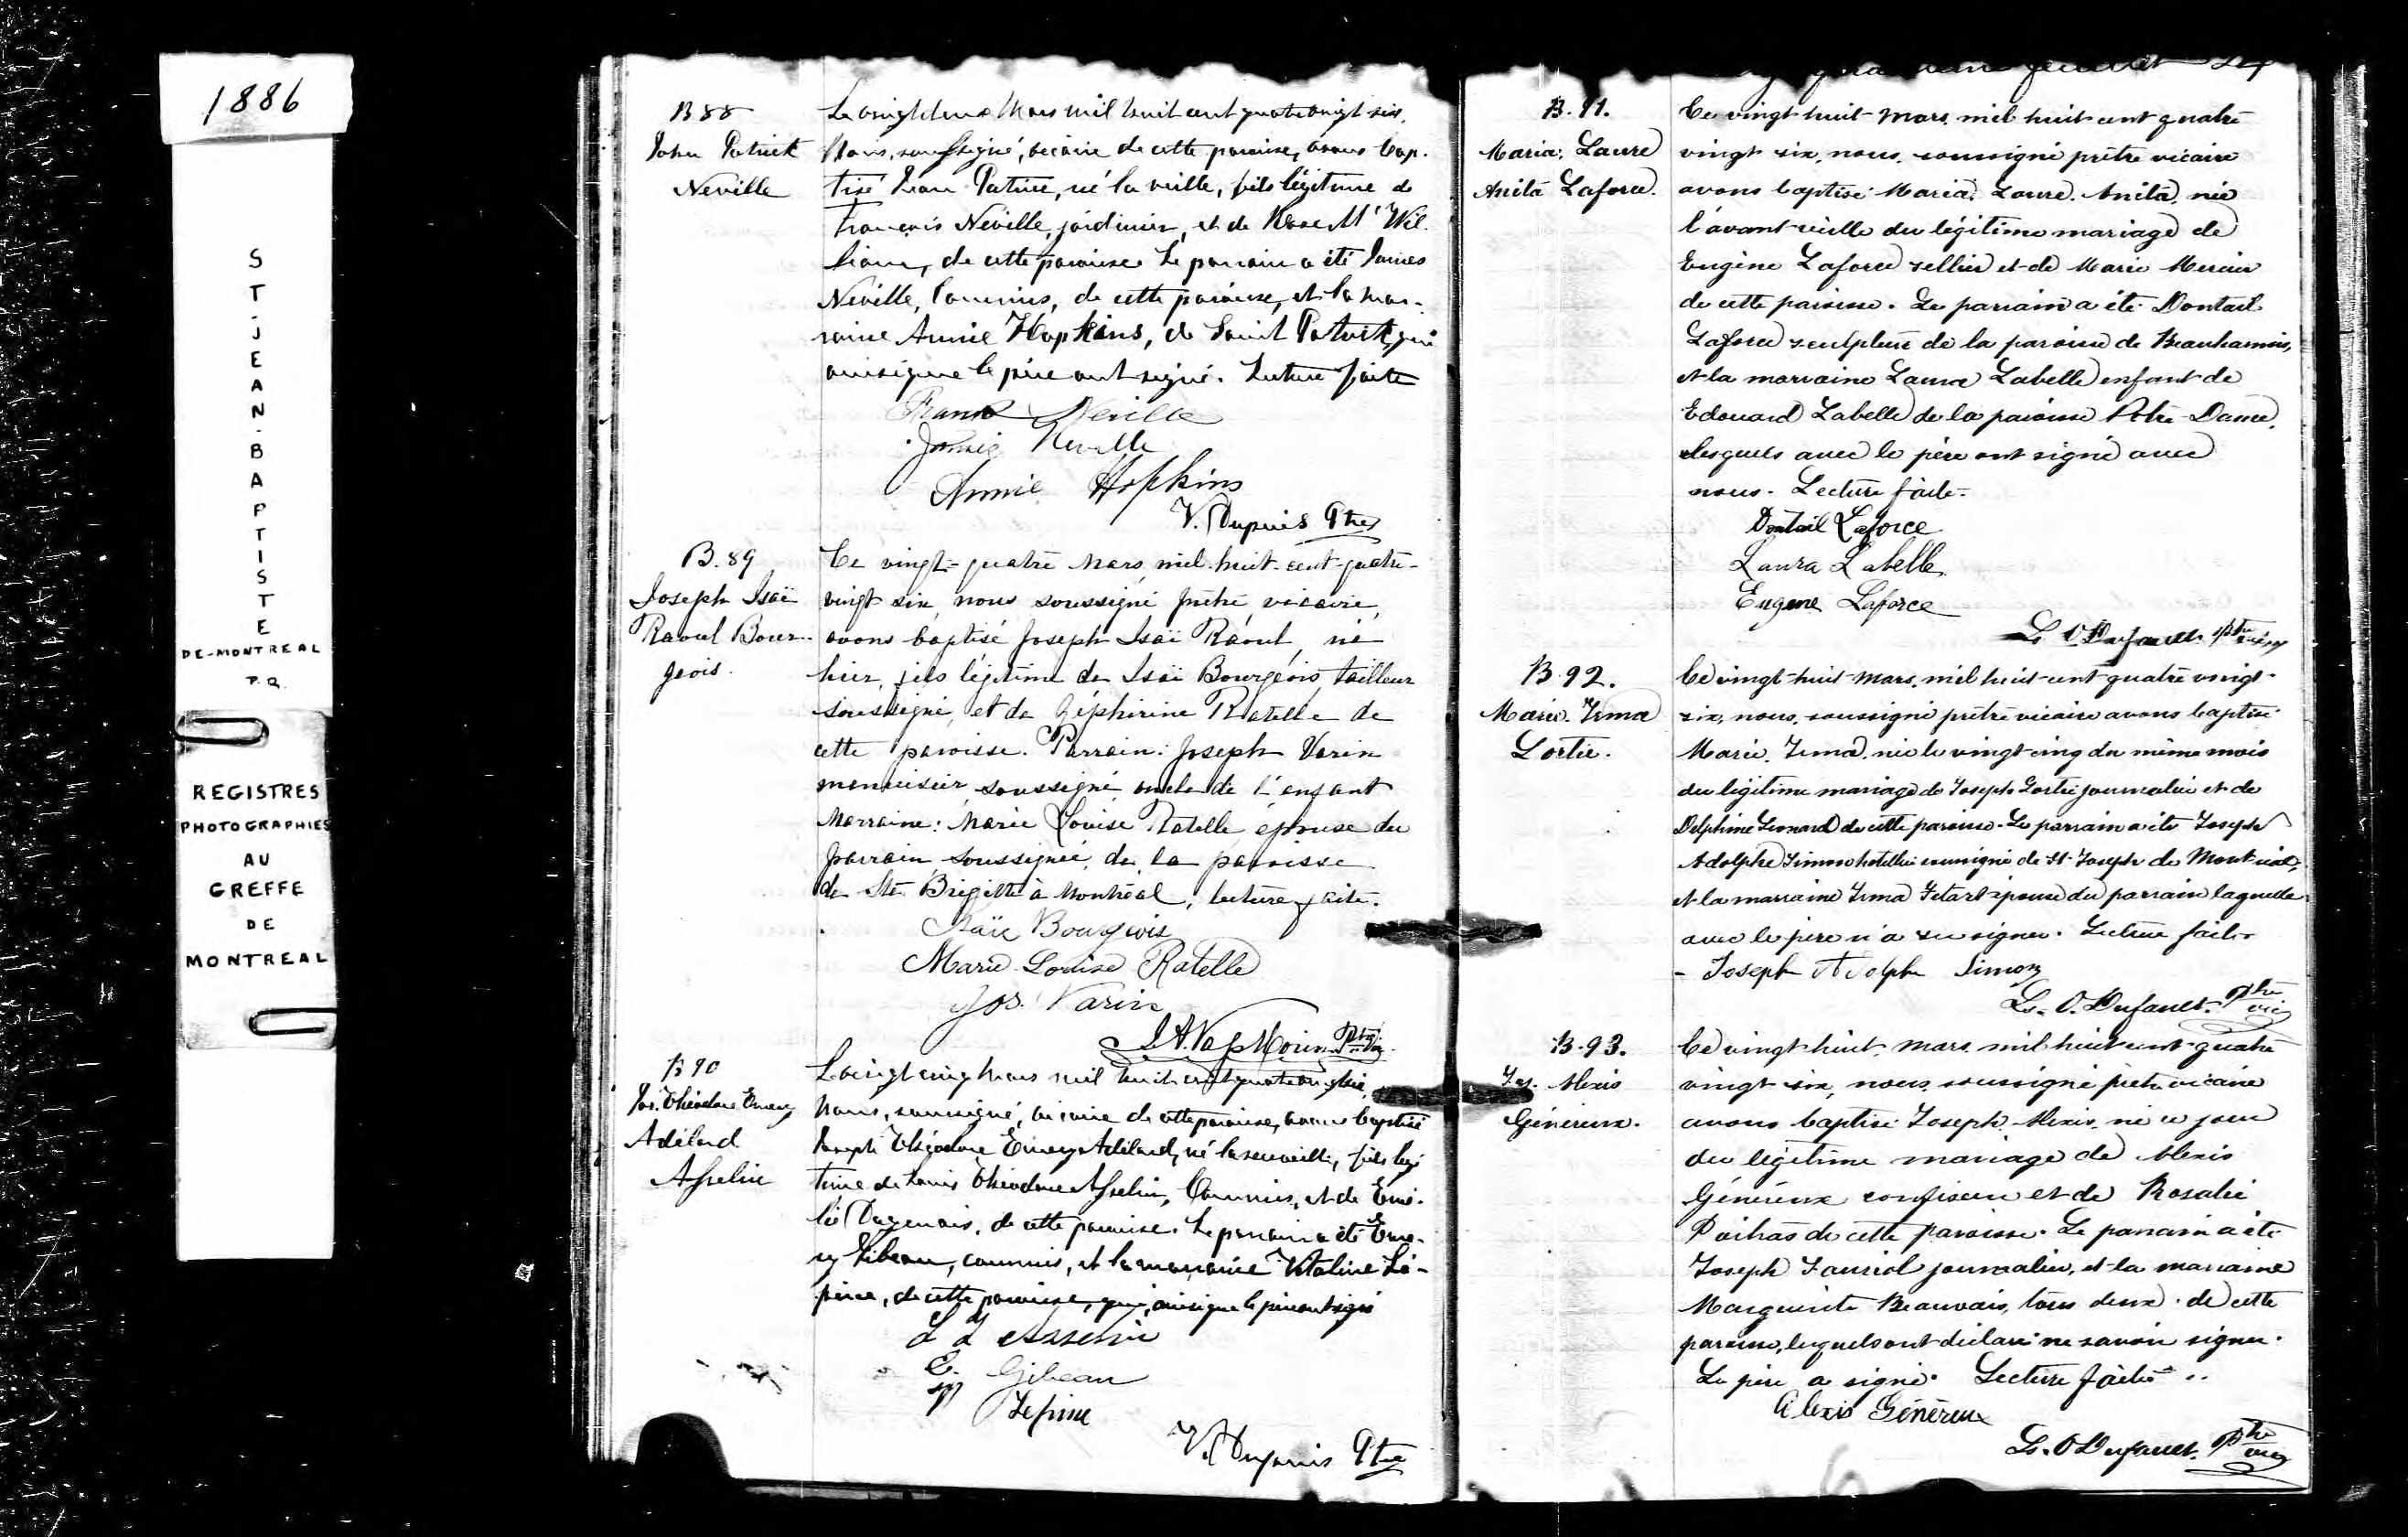 1886
ST. JEAN. BAPTISTE
DE-MONTREAL
P.Q.
REGISTRES
PHOTOGRAPHIES
AU
GREFFE
DE
MONTREAL
B 88
John Patrick
Neville
Le vingt deux Mars mil huit cent quatre vingt six,
Nous, soussigné, vicaire de cette paroisse, avons bap-
tisé Jean Patrice, né la veille, fils légitime de
François Neville, jardinier, et de Rose McWil
liams, de cette paroisse. Le parrain a été James
Neville, Commis, de cette paroisse, et la mar-
raine Annie Hopkins, de Saint Patrick, qui
ainsi que le père ont signé. Lecture faite
Frank Neville
James Neville
Annie Hopkins
V. Dupuis Ptre
B. 89
Joseph Isaï
Raoul Bour-
geois.
Ce vingt-quatre Mars, mil-huit-cent-quatre-
vingt six, nous soussigné prêtre vicaire,
avons baptisé Joseph Isaï Raoul, né
hier, fils légitime de Isaï Bourgeois, tailleur
soussigné, et de Zéphirine Ratelle de
cette paroisse. Parrain: Joseph Varin
menuisier soussigné oncle de l'enfant
Marraine: Marie Louise Ratelle épouse du
parrain soussignée, de la paroisse
de Ste Brigitte à Montréal, lecture faite.
Isaïe Bourgeois
Marie-Louise Ratelle
Jos. Varin
Morin Ptre
B 90
Jos. Théodore Emery
Adélard
Asselin
Le vingt cinq Mars mil huit cent quatre vingt six,
Nous, soussigné, vicaire de cette paroisse, avons baptisé
Joseph Théodore Emery Adélard, né la veille, fils légi
time de Louis Théodore Asselin, Commis, et de Emé-
lie Dagenais, de cette paroisse. Le parrain a été Eme-
ry Gibeau, commis, et la marraine Vitaline Lé-
pine, de cette paroisse, qui, ainsi que le père ont signé
L T Asselin
E. Gibeau
Lepine
V. Dupuis Ptre
B. 91.
Maria, Laure
Anita Laforce.
Ce vingt-huit Mars mil huit cent quatre
vingt six, nous, soussigné prêtre vicaire
avons baptisé Maria, Laure, Anita, née
l'avant-veille du légitime mariage de
Eugène Laforce sellier et de Marie Mercier
de cette paroisse. Le parrain a été Dontail
Laforce sculpteur de la paroisse de Beauharnois,
et la marraine Laura Labelle enfant de
Edouard Labelle de la paroisse Notre-Dame,
lesquels avec le père ont signé avec
nous. Lecture faite.
Dontail Laforce
Laura Labelle
Eugene Laforce
Ls. O. Dufault. Ptre vic
B. 92.
Marie. Irma
Lortie.
Ce vingt-huit Mars, mil huit cent quatre vingt-
six, nous, soussigné prêtre vicaire avons baptisé
Marie, Irma, née le vingt-cinq du même mois
du légitime mariage de Joseph Lortie journalier et de
Delphine Leonard de cette paroisse. Le parrain a été Joseph
Adolphe Simon hotellier soussigné de St. Joseph de Montréal,
et la marraine Irma épouse du parrain laquelle
avec le père n'a su signer. Lecture faite
- Joseph Adolph Simon
Ls. O. Dufault. Ptre vic
B. 93.
Jos. Alexis
Généreux.
Ce vingt-huit Mars mil huit cent quatre
vingt six, nous, soussigné prêtre vicaire
avons baptisé Joseph Alexis, né ce jour
du légitime mariage de Alexis
Généreux confiseur et de Rosalie
de cette paroisse. Le parrain a été
Joseph Fauriol journalier, et la marraine
Marguerite Beauvais, tous deux de cette
paroisse, lesquels ont déclaré ne savoir signer.
Le père a signé. Lecture faite..
Alexis Généreux
Ls. O Dufault. Ptre vic